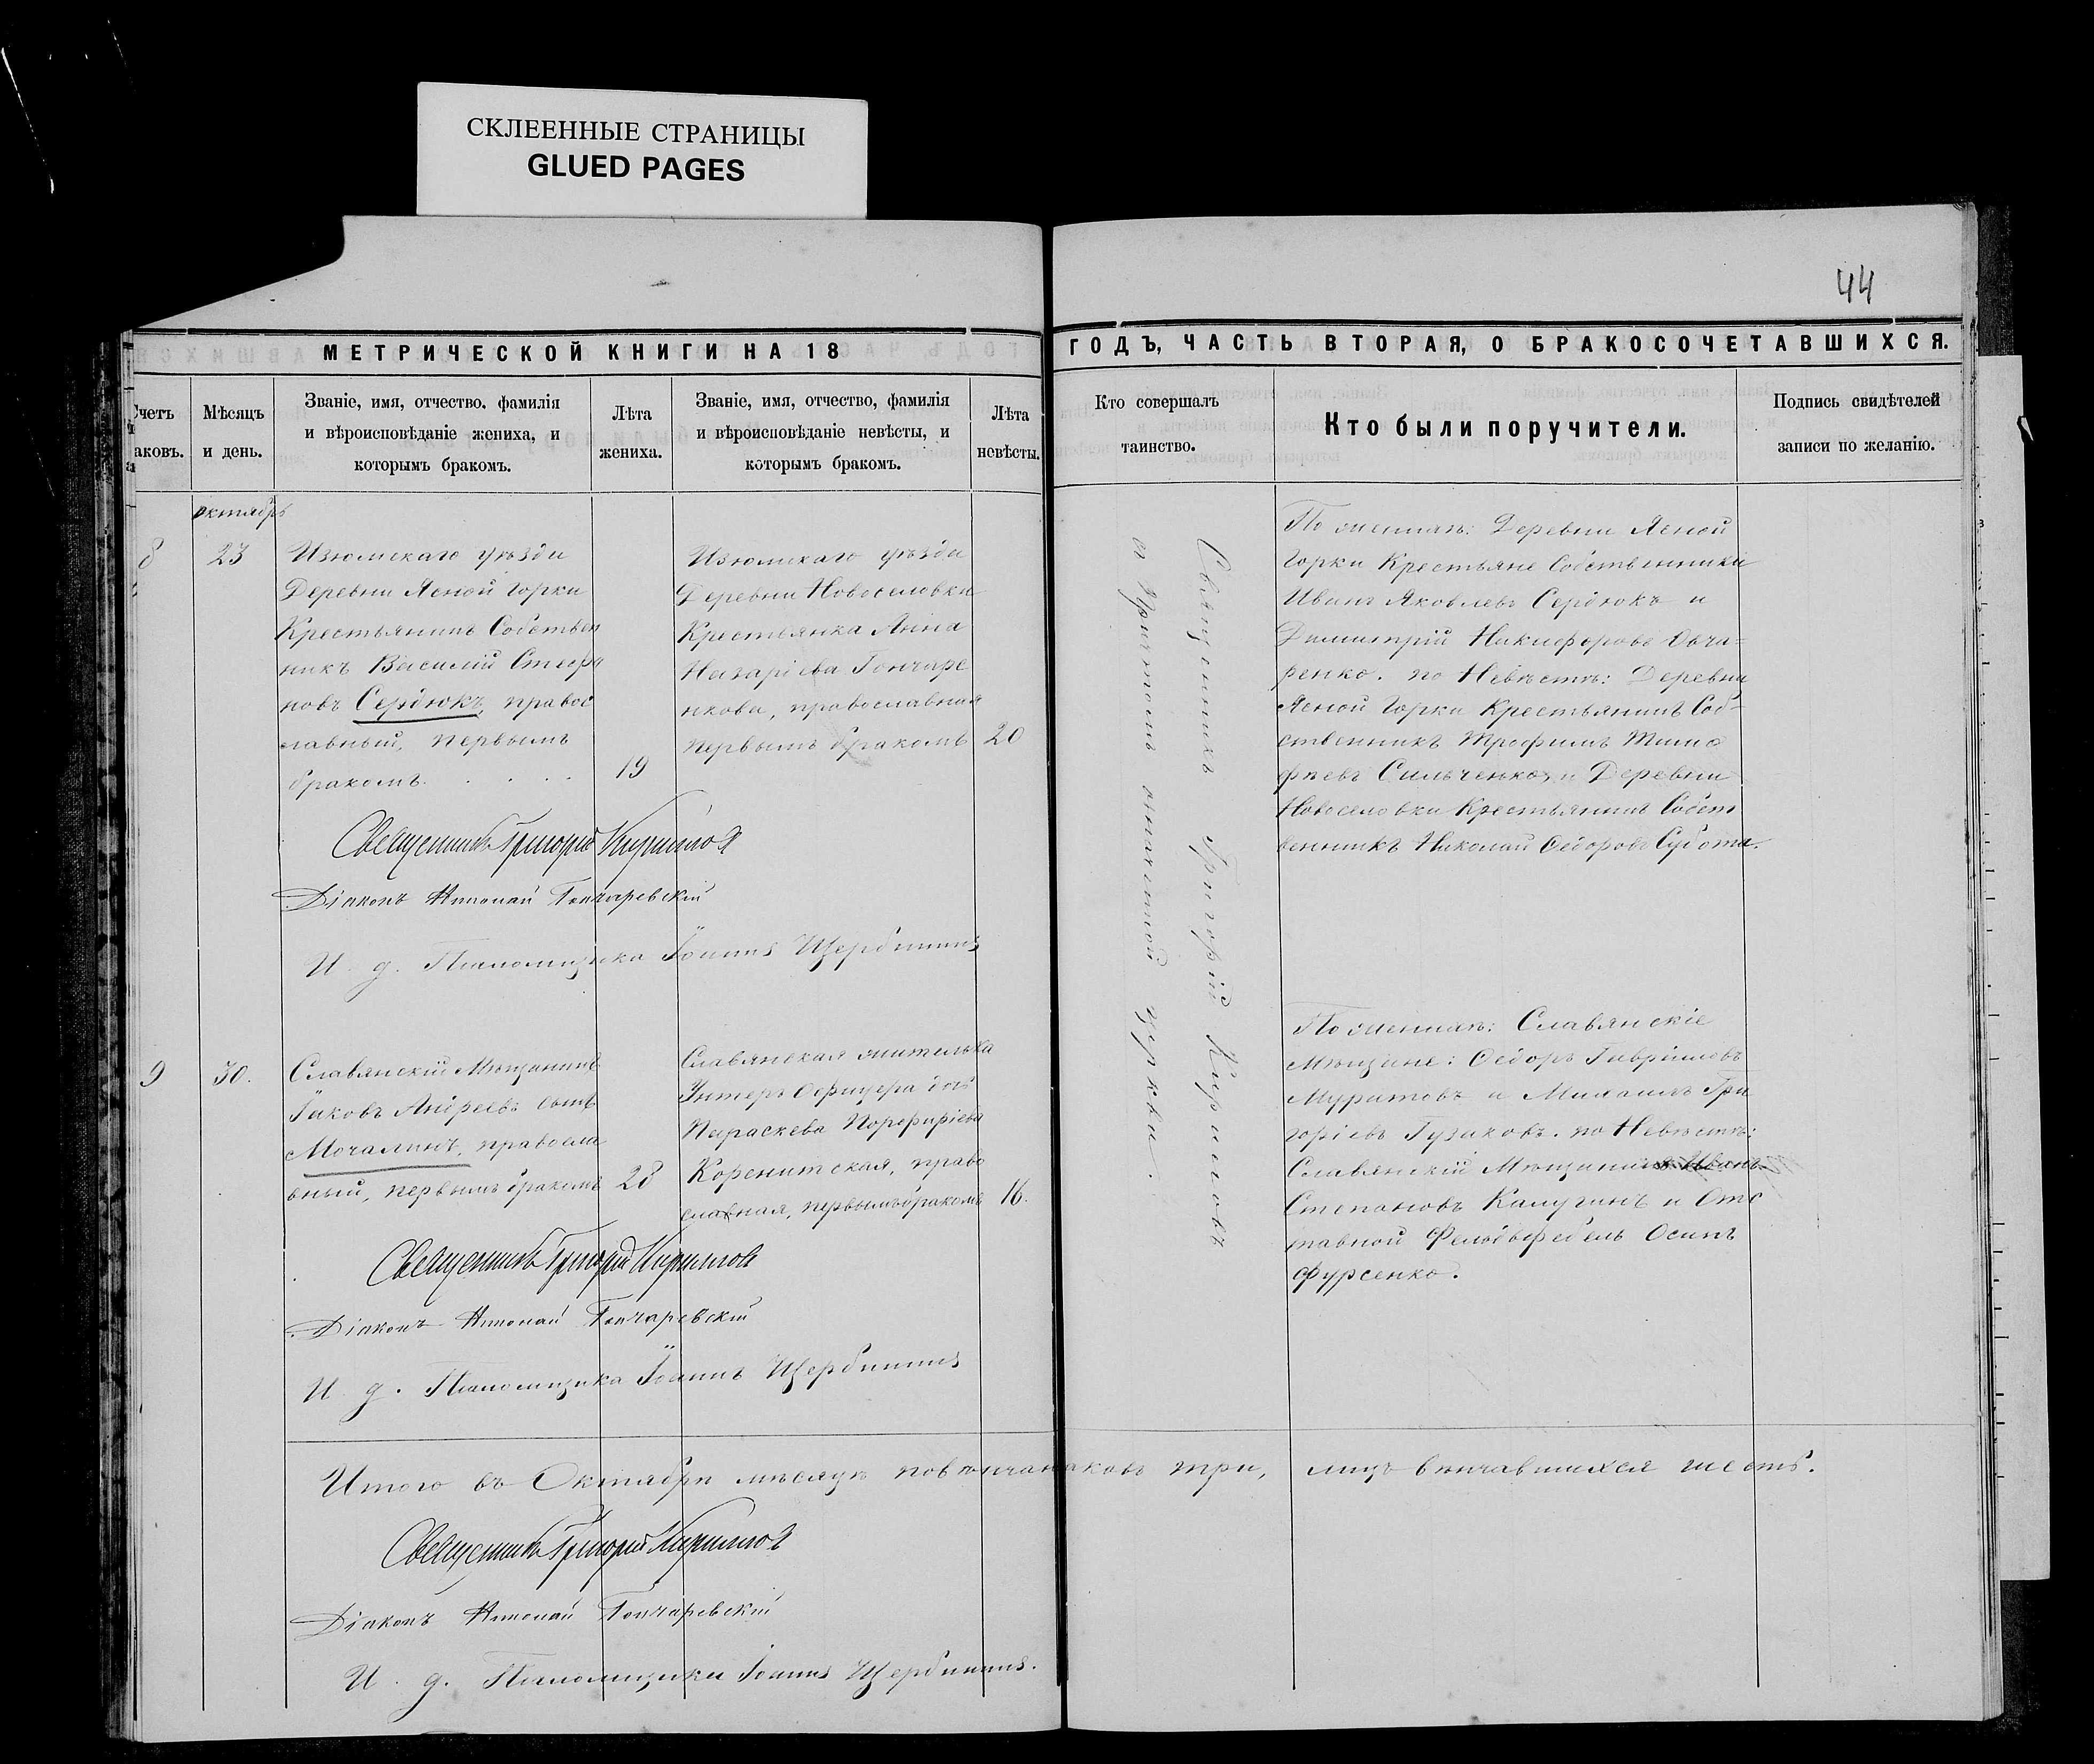 СКЛЕЕННЫЕ СТРАНИЦЫ
GLUED PAGES
44
МЕТРИЧЕСКОЙ КНИГИ НА 18
ГОДЪ, ЧАСТЬ ВТОРАЯ, О БРАКОСОЧЕТАВШИХСЯ.
четъ
аковъ.
Мѣсяцъ
и день.
Званіе, имя, отчество, фамилія
и вѣроисповѣданіе жениха, и
которымъ бракомъ.
Лѣта
жениха.
Званіе, имя, отчество, фамилія
и вѣроисповѣданіе невѣсты, и
которымъ бракомъ.
Лѣта
невѣсты.
Кто совершалъ
таинство.
Кто были поручители.
Подпись свидѣтелей
записи по желанію.
октябрь
8
23
Изюмскаго уѣзда
Деревни Ясной Горки
Крестьянинъ Собствен
никъ Василій Стефа
новъ Сердюкъ, правос
лавный, первымъ
бракомъ. . . . .
19
Изюмскаго уѣзда
Деревни Новоселовки
Крестьянка Анна
Назаріева Гончаре
нкова, православная
первымъ бракомъ
20
Священникъ Григорій Кириловъ
и Причтомъ означенной церкви.
По женихѣ: Деревни Ясной
Горки Крестьяне Собственники
Иванъ Яковлевъ Сердюкъ и
Димитрій Никифоровъ Овча=
ренко. по Невѣстѣ: Деревни
Ясной Горки Крестьянинъ Соб-
ственникъ Трофимъ Тимо
фѣевъ Сильченко, и Деревни
Новоселовки Крестьянинъ Собст
венникъ Николай Ѳедоровъ Субота.
Священникъ Григорій Кириловъ
Діаконъ Николай Гончаревскій
И. д. Псаломщика Іоаннъ Щербининъ
9
30.
Славянскій Мѣщанинъ
Іаковъ Андреевъ сынъ
Мочалинъ, правосла
вный, первымъ бракомъ
28
Славянская жителька
Унтеръ Офицера дочь
Параскева Порфиріева
Коренитская, право
славная, первымъ бракомъ
16.
По женихѣ: Славянскіе
Мѣщане: Ѳедоръ Гавріиловъ
Муратовъ и Михаилъ Гри
горіевъ Гузиковъ. по Невѣстѣ:
Славянскій Мѣщанинъ Иванъ
Степановъ Калугинъ и Отс
тавной Фельдфебель Осипъ
Фурсенко.
Священникъ Григорій Кириловъ
Діаконъ Николай Гончаревскій
И. д. Псаломщика Іоаннъ Щербининъ
Итого въ Октябрѣ мѣсяцѣ повѣнчано браковъ три, лицъ вѣнчавшихся шесть.
Священникъ Григорій Кириловъ
Діаконъ Николай Гончаревскій
И. д. Псаломщика Іоаннъ Щербининъ.